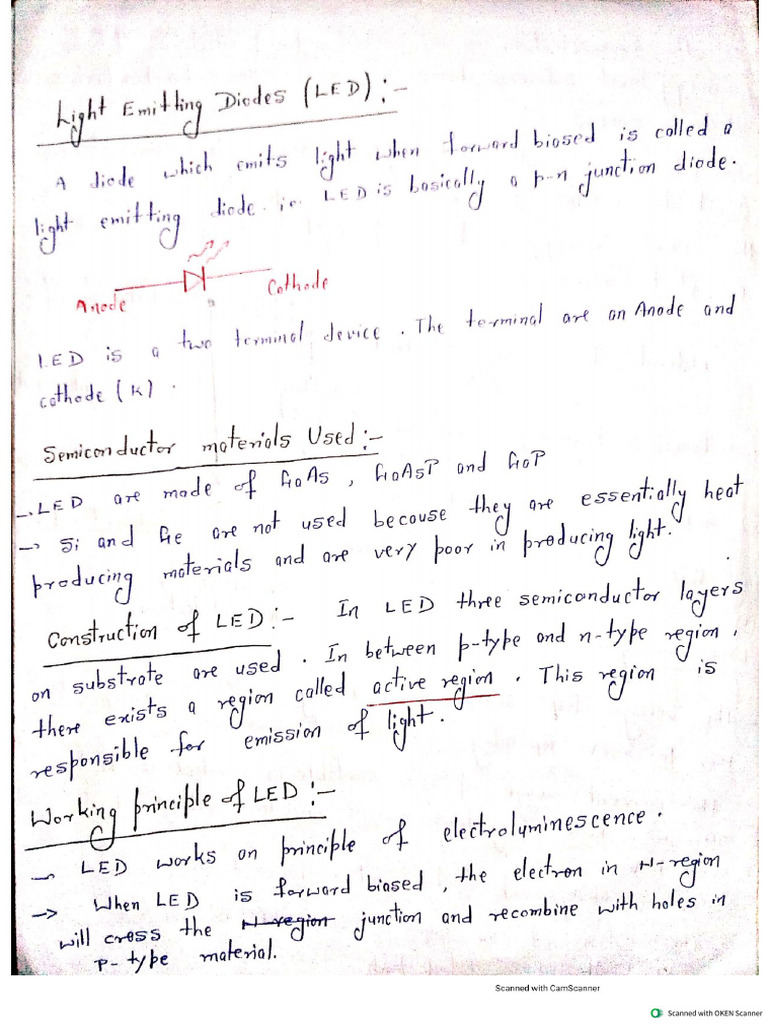 Light Emitting Diodes (LED):-
A diode which emits light when forward biased is called a
light emitting diode. i.e. LED is basically a p-n junction diode.
Anode Cathode
LED is a two terminal device. The terminal are an Anode and
cathode (K).
Semiconductor materials Used:-
→ LED are made of GaAs, GaAsP and GaP
→ Si and Ge are not used because they are essentially heat
producing materials and are very poor in producing light.
Construction of LED:- In LED three semiconductor layers
on substrate are used. In between p-type and n-type region,
there exists a region called active region. This region is
responsible for emission of light.
Working principle of LED:-
→ LED works on principle of electroluminescence.
→ When LED is forward biased, the electron in N-region
will cross the N-region junction and recombine with holes in
P-type material.
Scanned with CamScanner
Scanned with OKEN Scanner